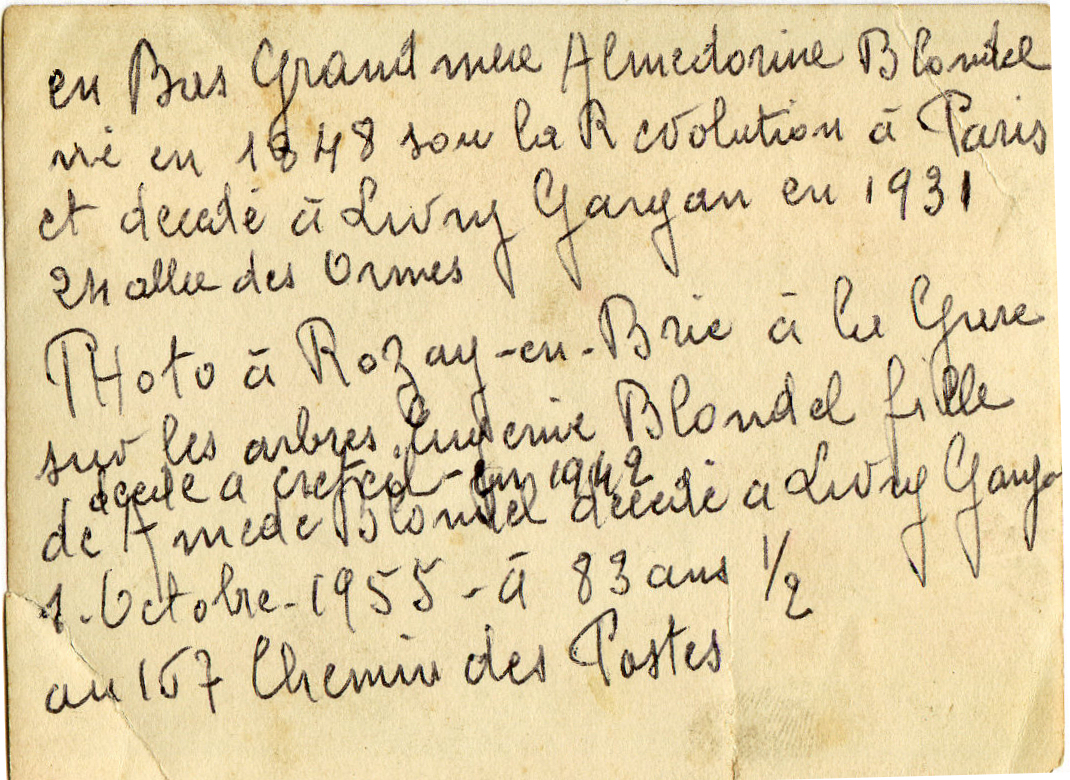 en Bas Grand mere Almedorine Blondel
né en 1848 sou la Revolution à Paris
et decedé à Livry Gargan en 1931
24 allee des Ormes
PHoto à Rozay-en-Brie à la Gare
sur les arbres. Eugenie Blondel fille
decedé a en 1942
de Amedé Blondel decedé a Livry Garga
1. Octobre. 1955 - à 83 ans 1/2
au 157 Chemin des Postes